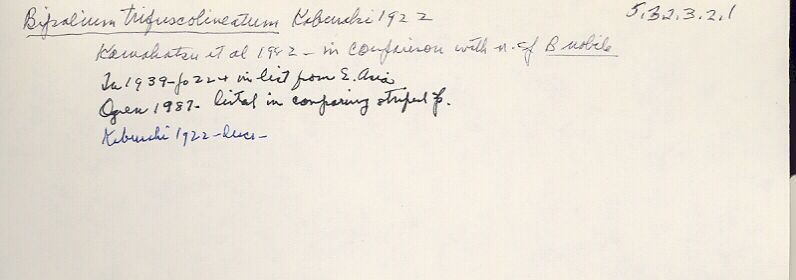 Bipalium trifuscolineatum Kaburaki 1922 5.3.2.3.2.1
Kawakatsu et al 1982 - in comparison with n. of B nobile
In 1939 - in list from E. Asia
Ogren 1987 - listed in comparing striped
Kaburaki 1922 - desc -